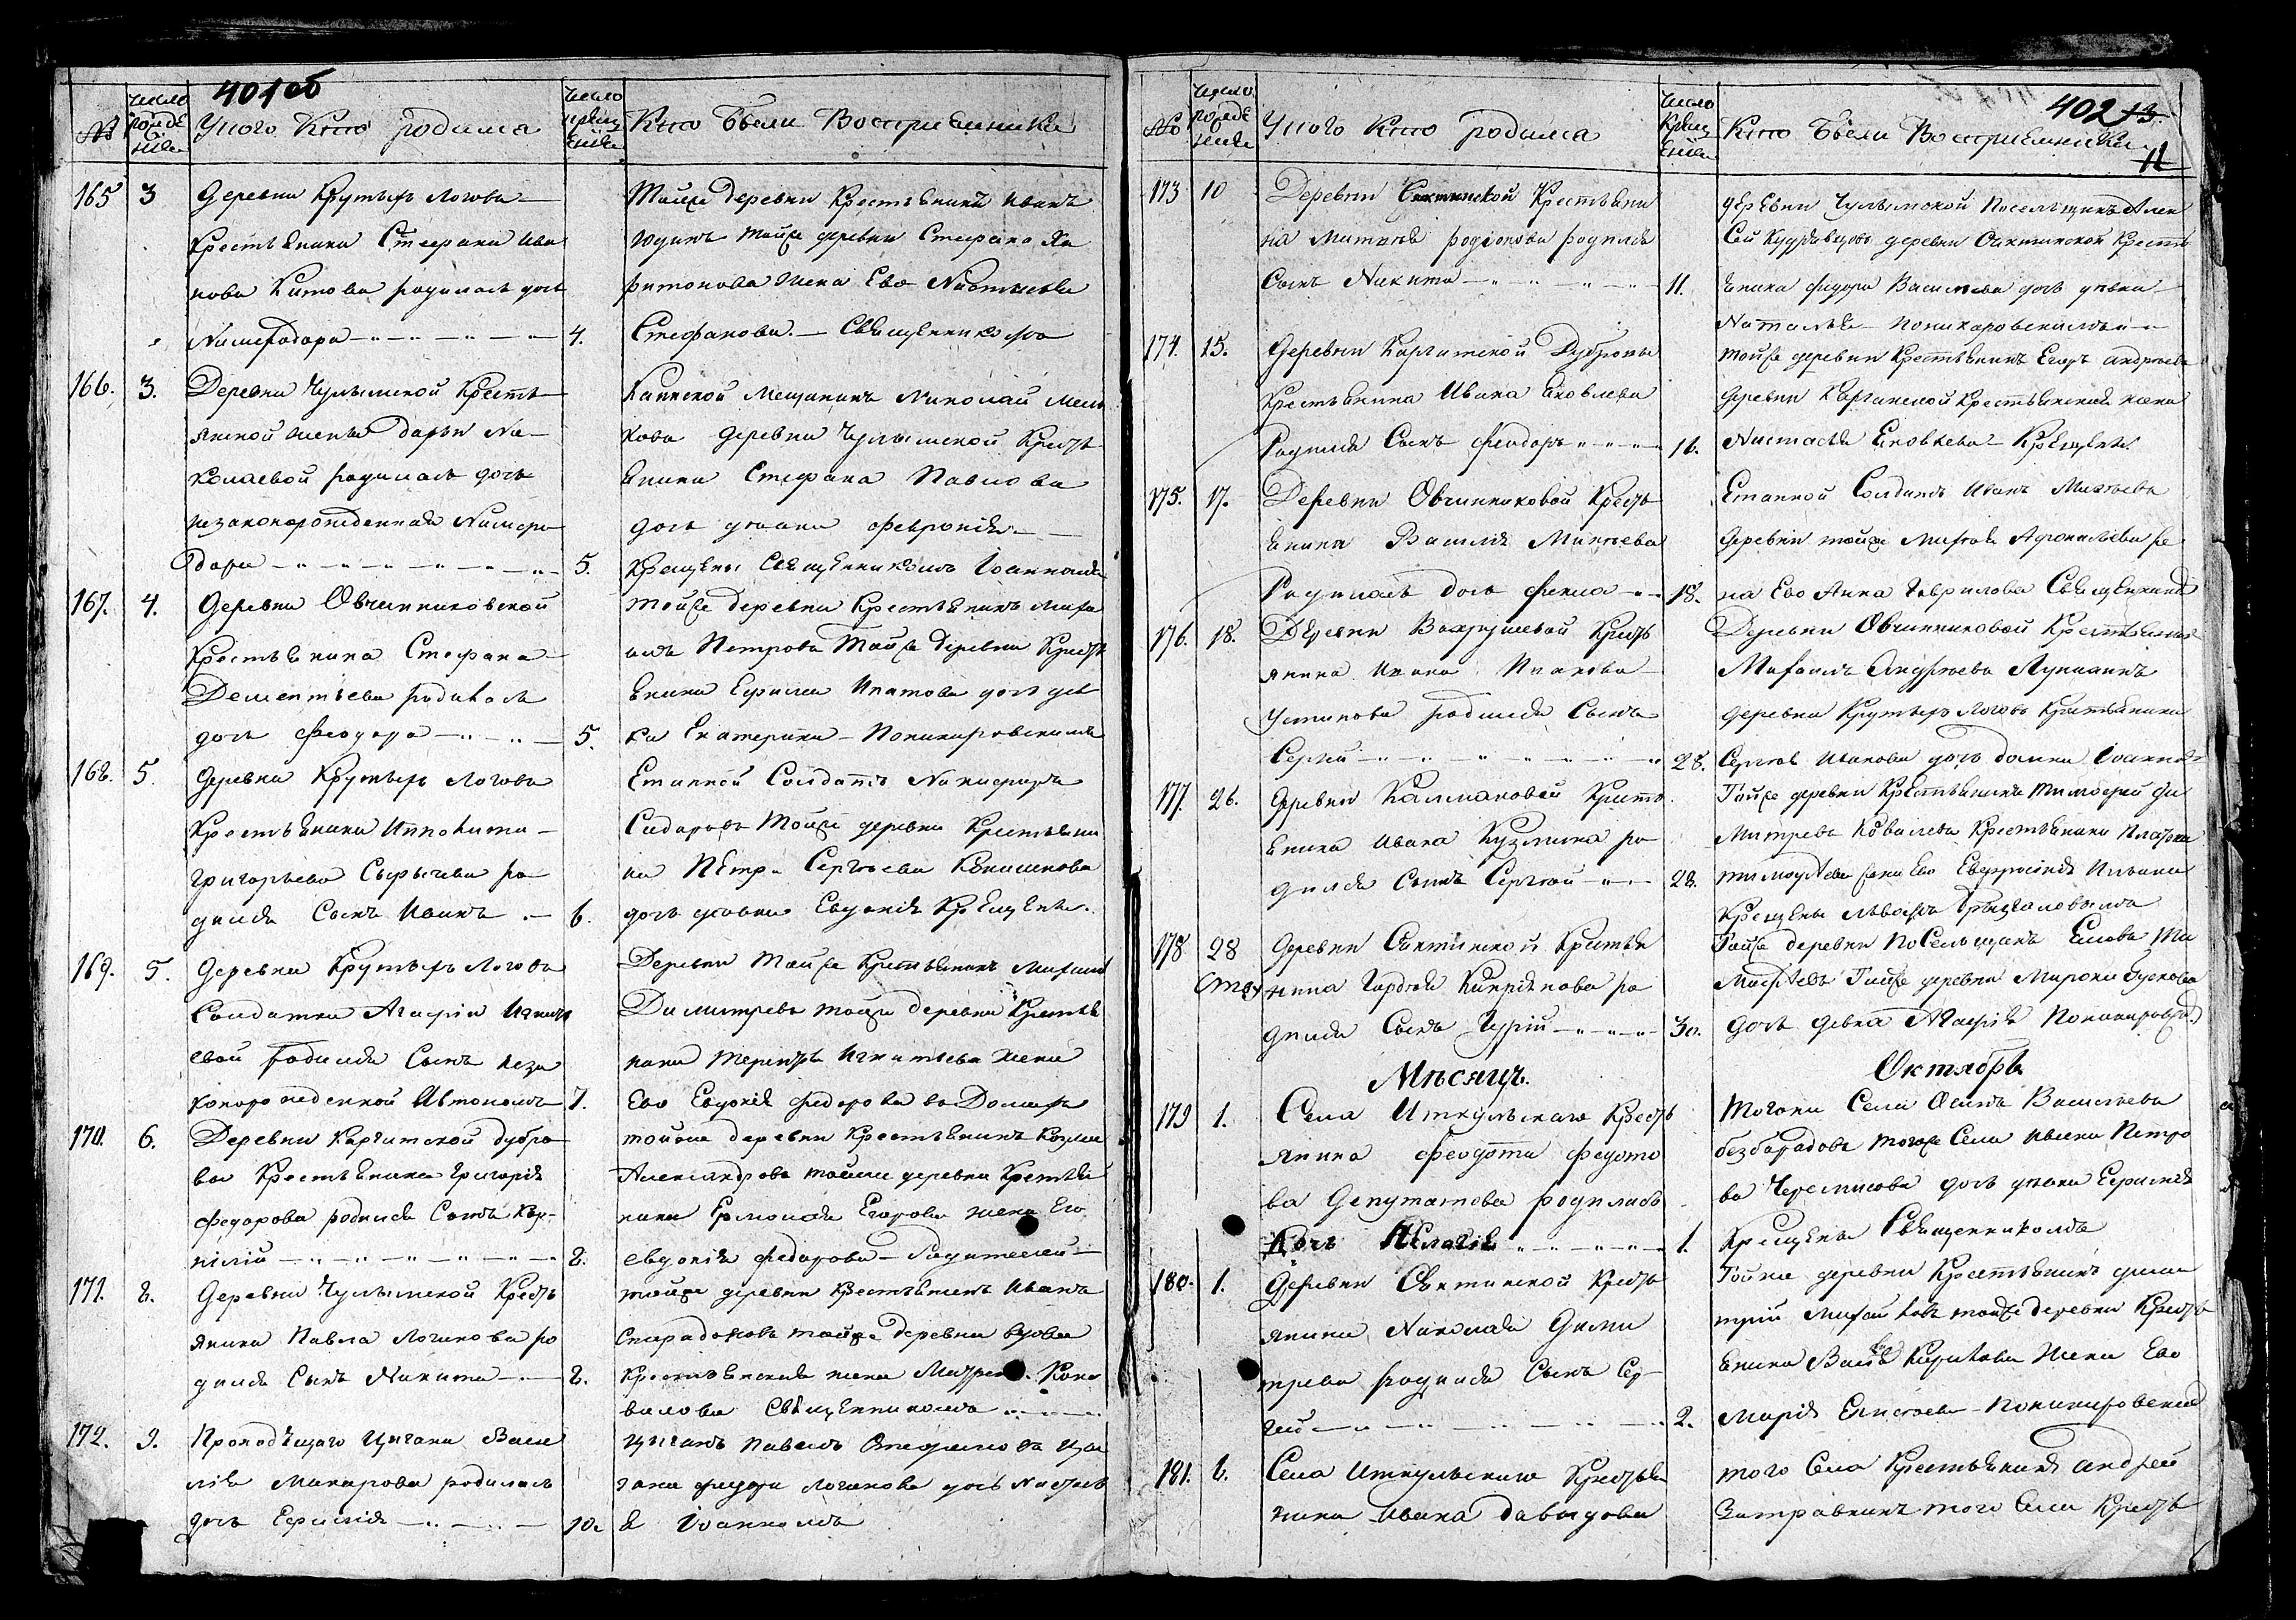 401 об
№
число рожде нія
У кого Кто родился
число крещ енія
Кто были Восприемники
165 3 Деревни Крутыхъ Логовъ
Крестьянина Стефана Ива
нова Китова родилась дочь
Нимфадора 4.
Тойже деревни Крестьянинъ Иванъ
Юдинъ тойже деревни Стефана Ха
ритонова жена Ево Настасья
Стефанова Священникомъ
166. 3. Деревни Чулымской Кресть
янской жены Дарьи Ни
колаевой родилась дочь
незаконорожденная Нимфо
дора 5.
Каинской Мещанинъ Николай Мель
ковъ деревни Чулымской Кресть
янина Стефана Павлова
дочь девка Февронія
Крещены Священникомъ Іоанномъ
167. 4. Деревни Овчинниковской
Крестьянина Стефана
Дементьева родилась
дочь Феодора 5.
тойже деревни Крестьянинъ Миха
илъ Петровъ Тойже деревни Кресть
янина Ефима Ипатова дочь дев
ка Екатерина Поникаровскимъ
168. 5. Деревни Крутыхъ Логовъ
Крестьянина Ипполита
Григорьева Сырычева ро
дился Сынъ Иванъ 6.
Етапной Солдатъ Никифоръ
Сидоровъ Тойже деревни Крестьяни
на Петра Сергеева Конишкова
дочь девка Евдокія Крещены
169. 5. Деревни Крутыхъ Логовъ
Солдатки Агафіи Игнать
евой родился Сынъ неза
конорожденной Автономъ 7.
Деревни Тойже Крестьянинъ Михаилъ
Димитревъ тойже деревни Крестья
нина Терентья Игнатьева жена
Ево Евдокія Федорова
170. 6. Деревни Каргатской дубро
вы Крестьянина Григорія
Федорова родился Сынъ Кор
нилій 8.
тойже деревни Крестьянинъ Козма
Александровъ тойже деревни Крестья
нина Ермолая Егорова жена Его
Евдокія Федорова
171. 8. Деревни Чулымской Кресть
янина Павла Логинова ро
дился Сынъ Никита 8.
тойже деревни Крестьянинъ Иванъ
Спирадоновъ тойже деревни вдова
Крестьянская жена Матрена Коно
валова Священникомъ
172. 9. Проходящаго Цыгана Васи
лія Макарова родилась
дочь Ефимія 10.
Цыганъ Павелъ Стефановъ Цы
гана Федора Логинова дочь Настась
я Іоанномъ
402 13
11
№
число рожде нія
У кого Кто родился
число Крещ енія
Кто были Восприемники
173 10 Деревни Сектинской Крестьяни
на Митрія Родіонова родился
Сынъ Никита 11.
деревни Чулымской Посельщикъ Алек
сей Кудрявцовъ деревни Сектинской Кресть
янина Федора Васильева дочь девка
Наталья Поникаровскимъ
174. 15. Деревни Каргатской Дубровы
Крестьянина Ивана Яковлева
Родился Сынъ Феодоръ 16.
тойже деревни Крестьянинъ Егоръ Андреевъ
деревни Карганской Крестьянская жена
Настасья Яковлева Крещены
175. 17. Деревни Овчинниковой Кресть
янина Василія Михеева
Родилась дочь Фекла 18.
Етапной Солдатъ Иванъ Михеевъ
деревни тойже
на Ево Анна Гаврилова Священникъ
176. 18. Деревни Вахрушевой Кресть
янина Ивана Иванова
Устинова родился Сынъ
Сергій 28.
Деревни Овчинниковой Крестьянинъ
Михаилъ Андреевъ Лунинъ
деревни Крутыхъ Логовъ Крестьянина
Сергея Иванова дочь Домна Іоанномъ
177 26. Деревни Калмаковой Кресть
янина Ивана Кузмина ро
дился Сынъ Сергей 28.
Тойже деревни Крестьянинъ Тимофей Ди
митревъ Ковалевъ Крестьянина Платона
Тимофеева жена Ево Евфросинія Ильина
Крещены
178 28 Деревни Сектинской Крестья
нина Гордея Кипріянова ро
дился Сынъ Гурій 30.
Тойже деревни Посельщикъ Ти
мофеевъ Тойже деревни Мирона Гускова
дочь девка Агафія Поникаровск
Мѣсяцъ. Октябрь
179 1. Села Иткульскаго Кресть
янина Феодота Федото
ва Депутатова родилась
дочь Пелагія 1.
Тогоже Села Осипъ Васильевъ
безбородовъ тогоже Села Ивана Петро
ва Черемисова дочь девка Ефимія
Крещены Священникомъ
180. 1. Деревни Сектинской Кресть
янина Николая Дими
трева родился Сынъ Сер
гей 2.
Тойже деревни Крестьянинъ Дими
трій Михайловъ тойже деревни Кресть
янина Василья Кирилова Жена Ево
Марія Елисеева Поникаровским
181. 6. Села Иткульскаго Крестья
нина Ивана Давыдова
того Села Крестьянинъ Андрей
Заправкинъ того Села Кресть